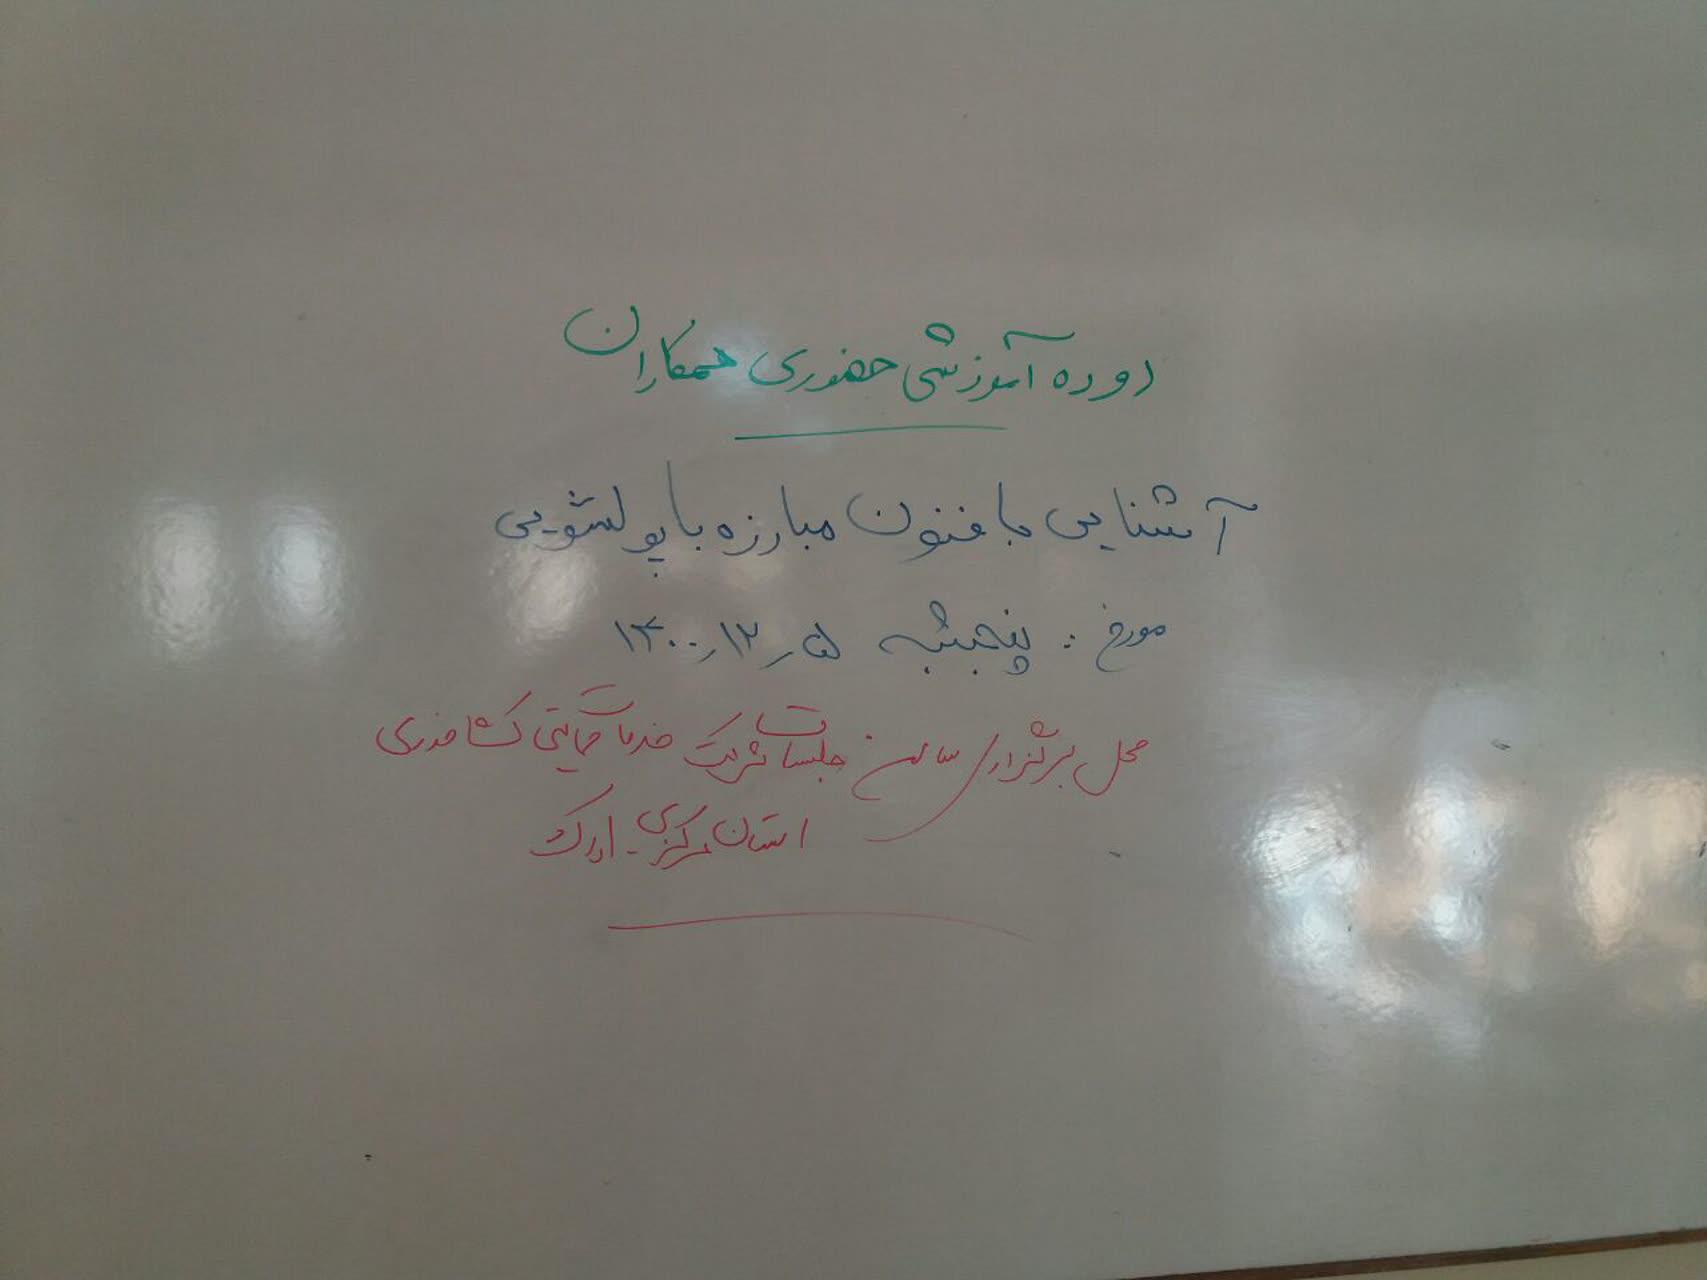 دوره آموزشی حضوری همکاران
آشنایی با فنون مبارزه با پولشویی
مورخ : پنجشنبه ۱۴۰۰٫۱۲٫۵
محل برگزاری سالن جلسات شرکت خدمات حمایتی کشاورزی
استان مرکزی - اراک